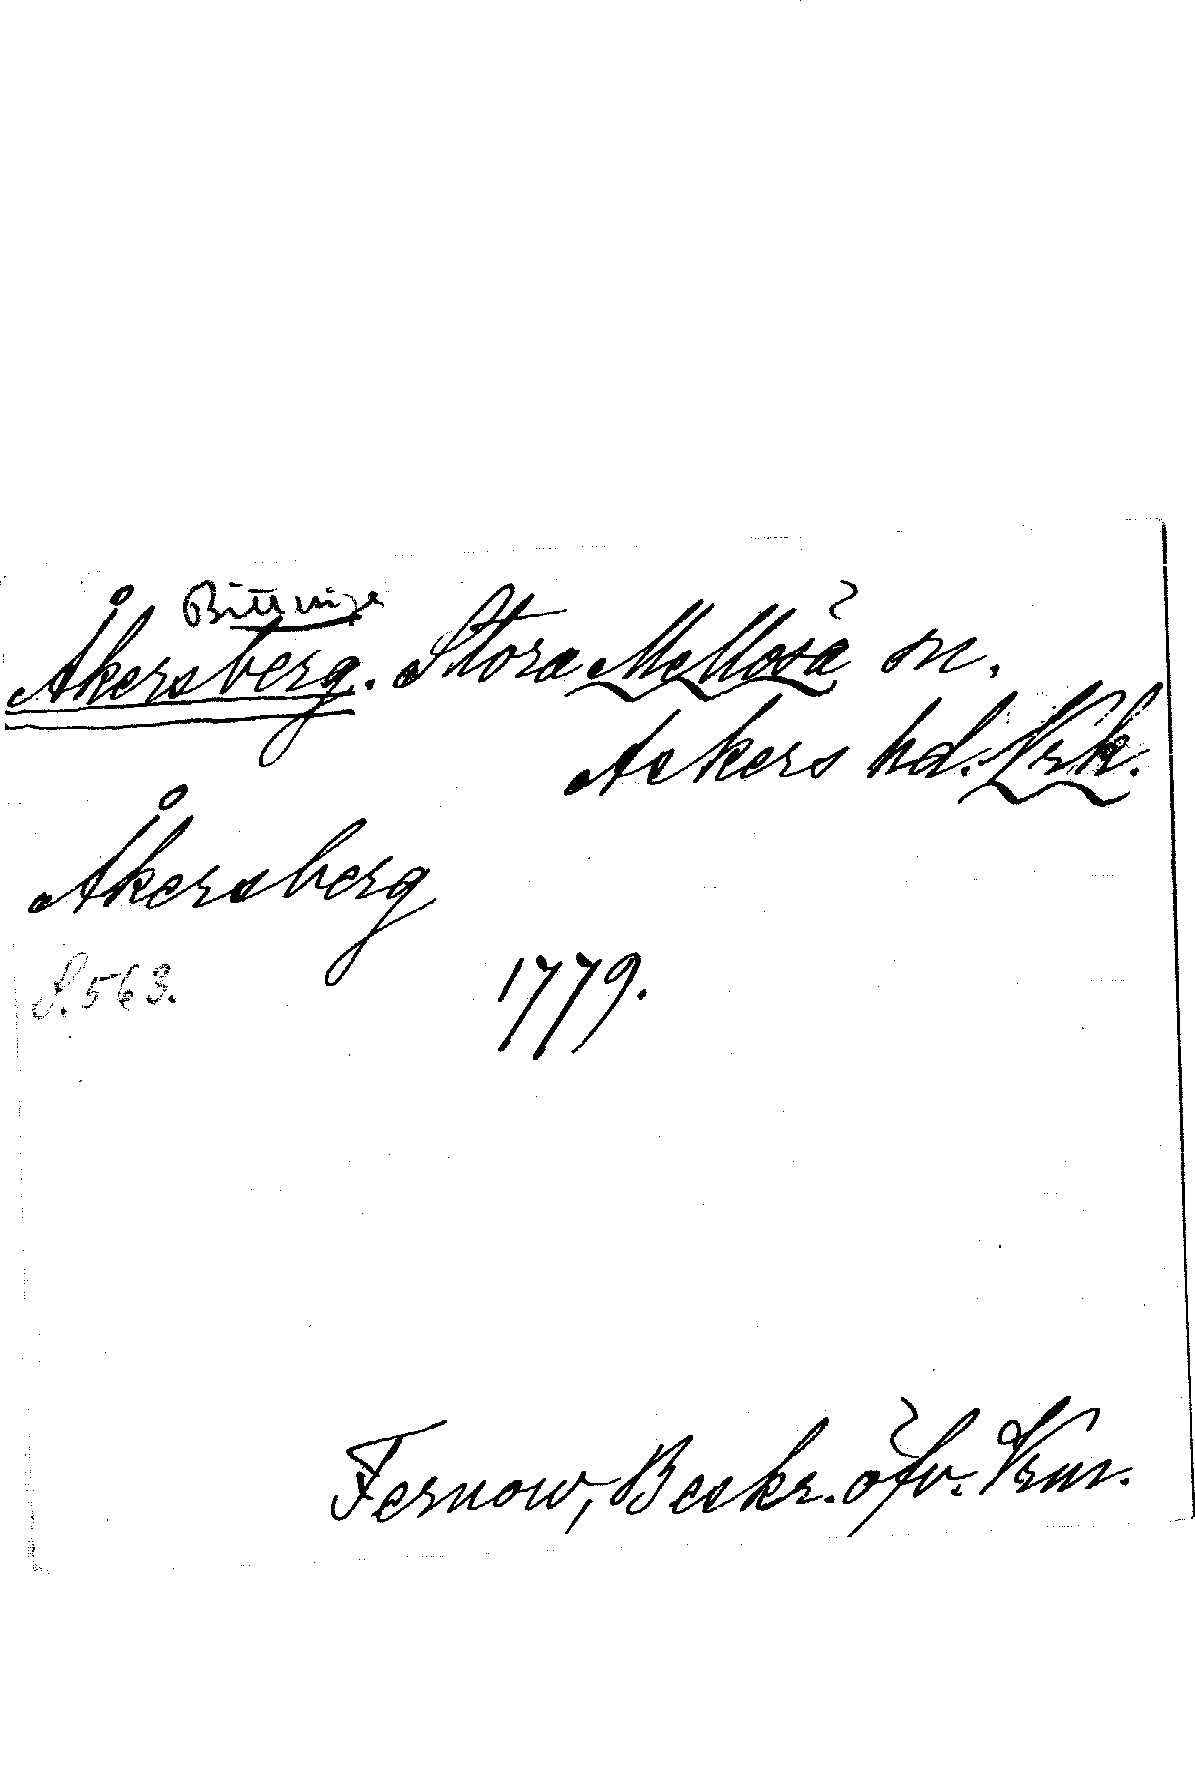 Bittinge
Åkersberg. Stora Mellösa sn.
Askers hd. Nrk.
Åkersberg
S. 563.
1779.
Fernow, Beskr. öfv. Vrm.